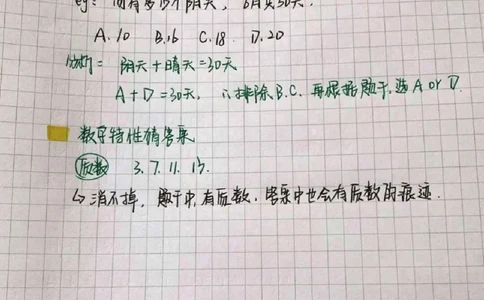 eg: 问有多少个阴天, 6月共30天.
A. 10 B.16 C.18. D.20
分析: 阴天+晴天=30天
A+D=30天, ∴排除B.C. 再根据题干,选A or D.
数字特性猜答案
质数 3. 7. 11. 13.
↳消不掉, 题干中有质数, 答案中也会有质数的痕迹.